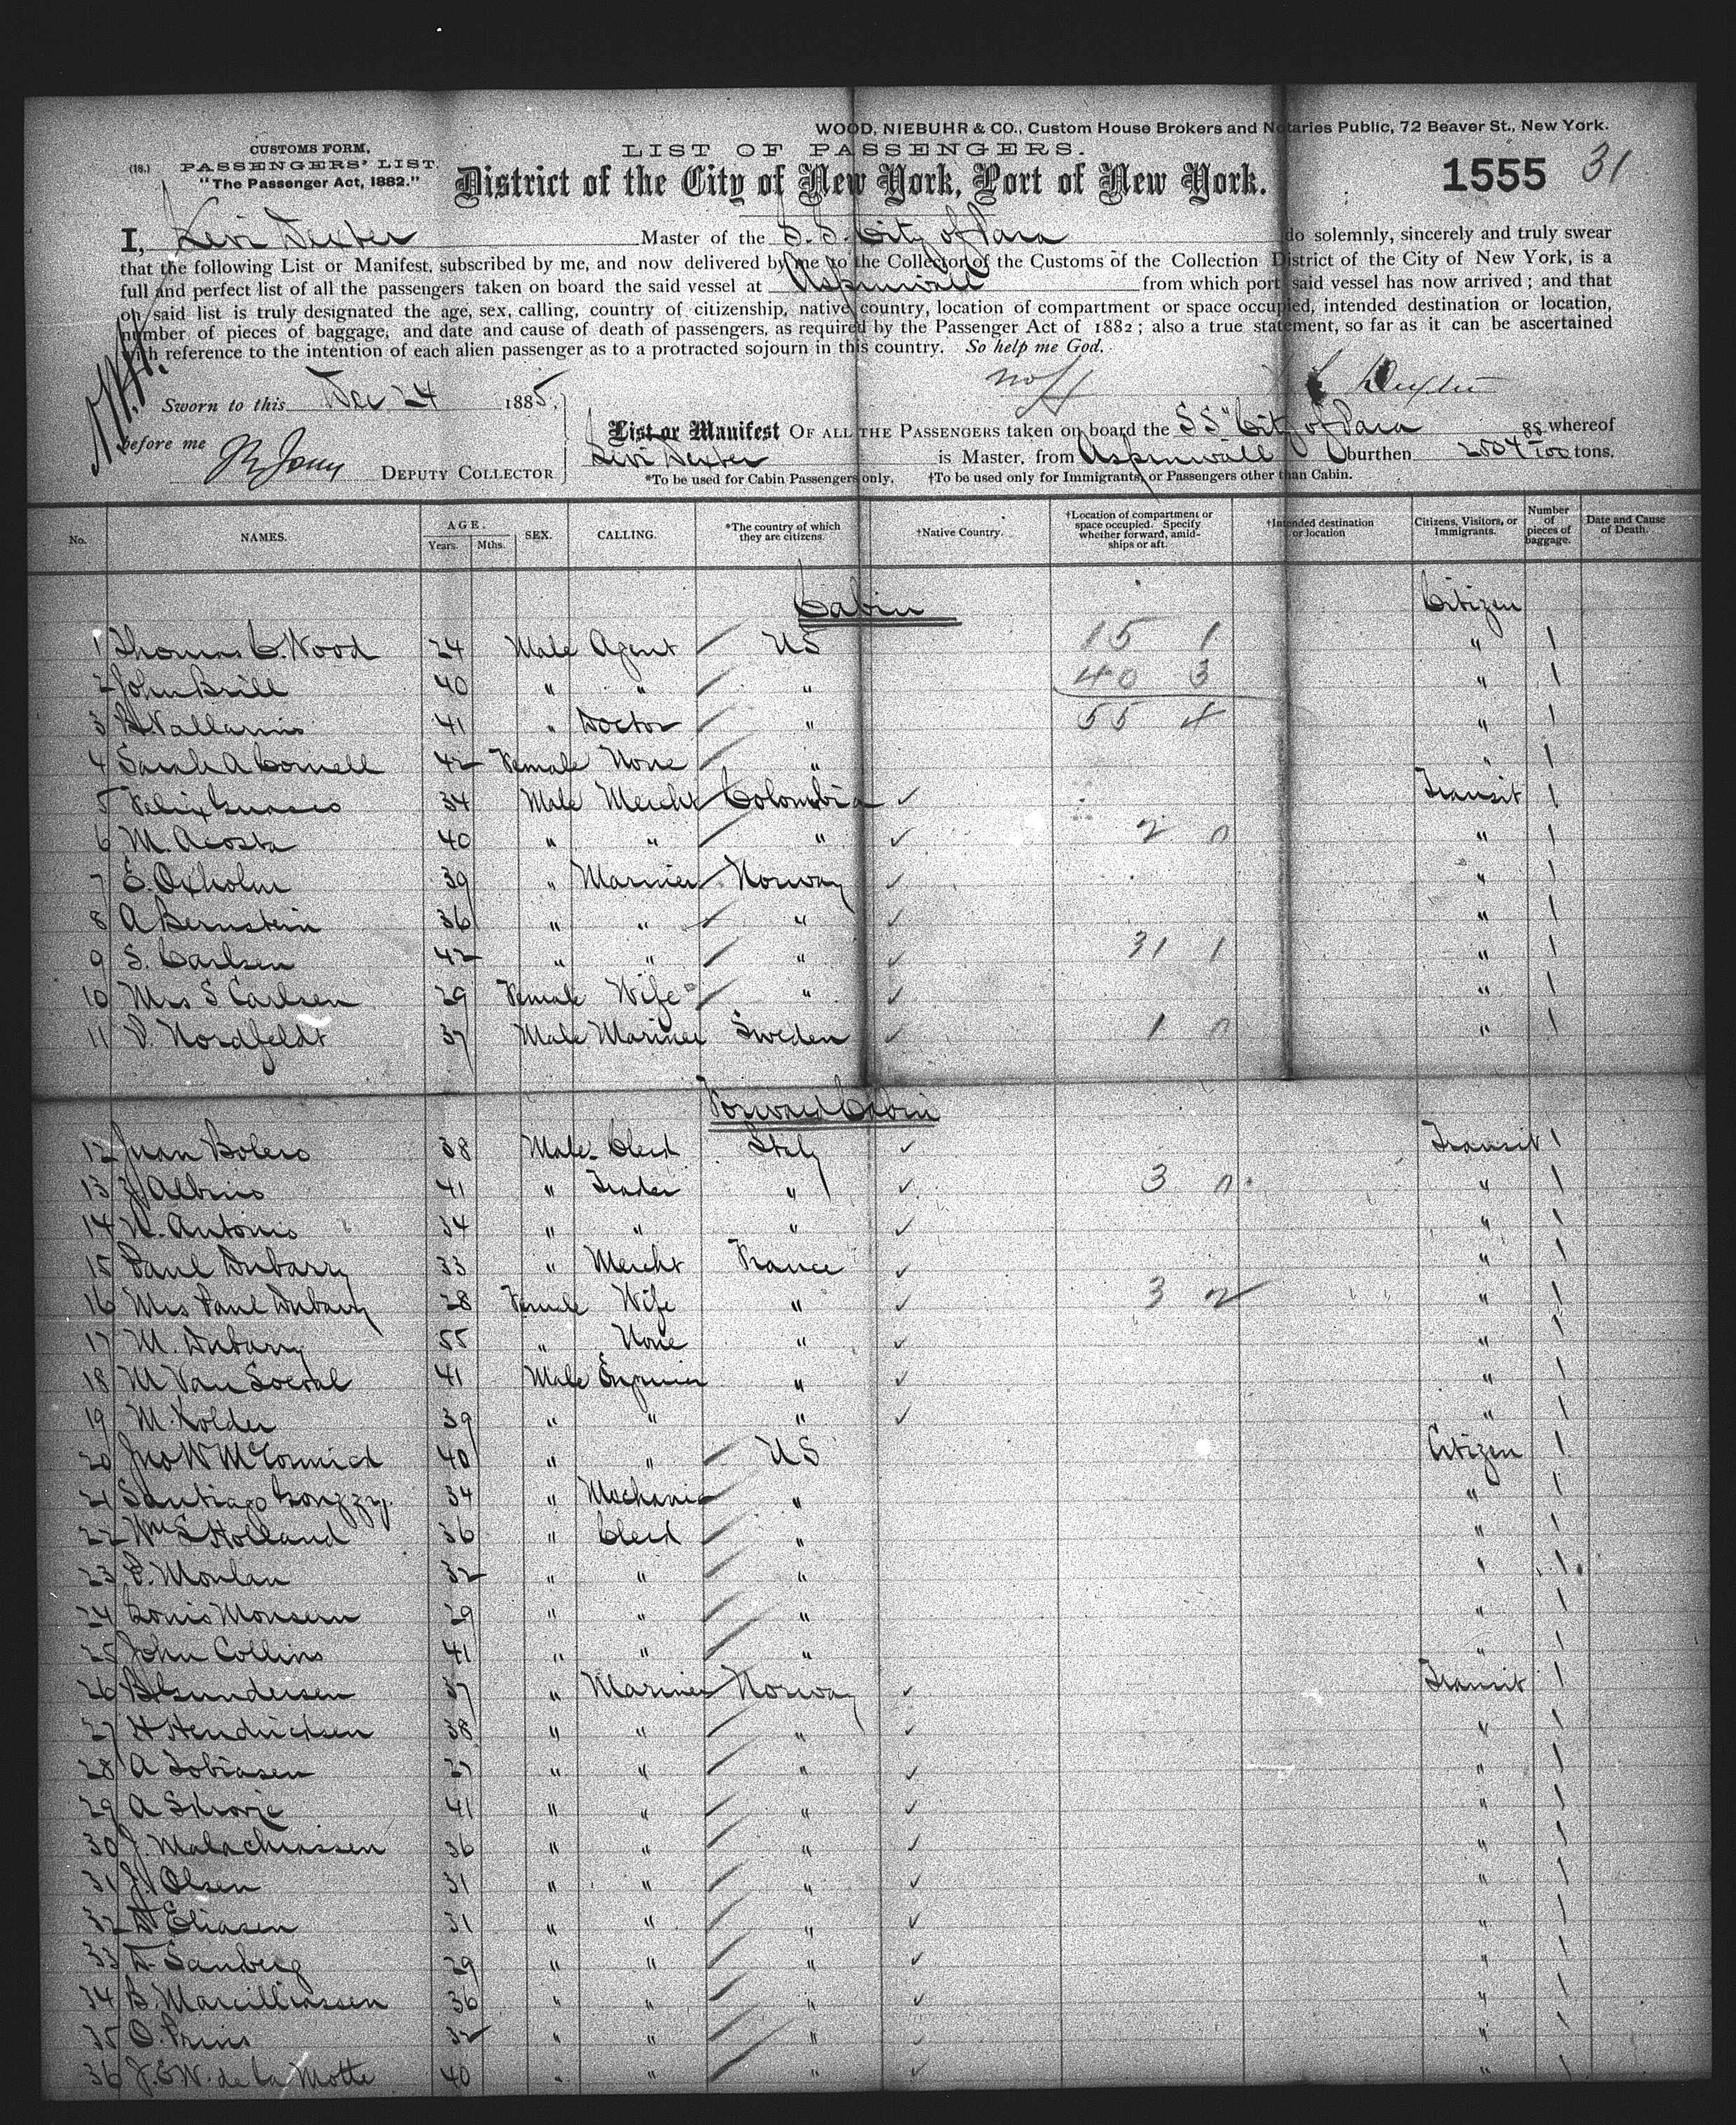 WOOD, NIEBUHR & CO., Custom House Brokers and Notaries Public, 72 Beaver St., New York.
CUSTOMS FORM,
LIST OF PASSENGERS.
(18.) PASSENGERS' LIST.
"The Passenger Act, 1882."
District of the City of New York, Port of New York.
1555 31
I, Levi Dexter Master of the S. S. City of Para do solemnly, sincerely and truly swear
that the following List or Manifest, subscribed by me, and now delivered by me to the Collector of the Customs of the Collection District of the City of New York, is a
full and perfect list of all the passengers taken on board the said vessel at Aspinwall from which port said vessel has now arrived; and that
on said list is truly designated the age, sex, calling, country of citizenship, native country, location of compartment or space occupied, intended destination or location,
number of pieces of baggage, and date and cause of death of passengers, as required by the Passenger Act of 1882; also a true statement, so far as it can be ascertained
with reference to the intention of each alien passenger as to a protracted sojourn in this country. So help me God.
L Dexter
Sworn to this Dec 24 1885,
before me
DEPUTY COLLECTOR
List or Manifest OF ALL THE PASSENGERS taken on board the SS "City of Para whereof
Levi Dexter is Master, from Aspinwall burthen 2504 85/100 tons.
*To be used for Cabin Passengers only. †To be used only for Immigrants, or Passengers other than Cabin.
No. NAMES. AGE. Years. Mths. SEX. CALLING. *The country of which they are citizens. †Native Country. †Location of compartment or space occupied. Specify whether forward, amidships or aft. †Intended destination or location Citizens, Visitors, or Immigrants. Number of pieces of baggage. Date and Cause of Death.
Cabin Citizen
1 Thomas C. Wood 24 Male Agent US 15 1 " 1
2 John Brill 40 " " " 40 3 " 1
3 41 " Doctor " 55 4 " 1
4 Sarah A Cornell 42 Female None " " 1
5 Felix 34 Male Mercht Colombia Transit 1
6 M. Acosta 40 " " " 2 0 " 1
7 E. Oxholm 39 " Mariner Norway " 1
8 A Bernstein 36 " " " " 1
9 S. Carlsen 42 " " " 31 1 " 1
10 Mrs S Carlsen 29 Female Wife " " 1
11 P. Nordfeldt 37 Male Mariner Sweden 1 0 " 1
Forward Cabin
12 Juan Bolero 38 Male Clerk Italy Transit 1
13 J Albino 41 " Trader " 3 0 " 1
14 N. Antonio 34 " " " " 1
15 Paul Dubarry 33 " Mercht France " 1
16 Mrs Paul Dubarry 28 Female Wife " 3 2 " 1
17 M. Dubarry 55 " None " " 1
18 M Van Soeral 41 Male Engineer " " 1
19 M. Kolder 39 " " " " 1
20 Jno W McCormick 40 " " US Citizen 1
21 Santiago 34 " Mechanic " " 1
22 Wm S Holland 36 " Clerk " " 1
23 E. Monlan 32 " " " " 1
24 Louis Monsern 29 " " " " 1
25 John Collins 41 " " " " 1
26 B Gundersen 37 " Mariner Norway Transit 1
27 H Hendricksen 38 " " " " 1
28 A Tobiasen 27 " " " " 1
29 A Skovje 41 " " " " 1
30 J. Malachiassen 36 " " " " 1
31 J. Olsen 31 " " " " 1
32 D Eliasen 31 " " " " 1
33 D. Sanberg 29 " " " " 1
34 B. Marcilliassen 36 " " " " 1
35 O. Prins 32 " " " " 1
36 J. E W. de la Motte 40 " " " " 1